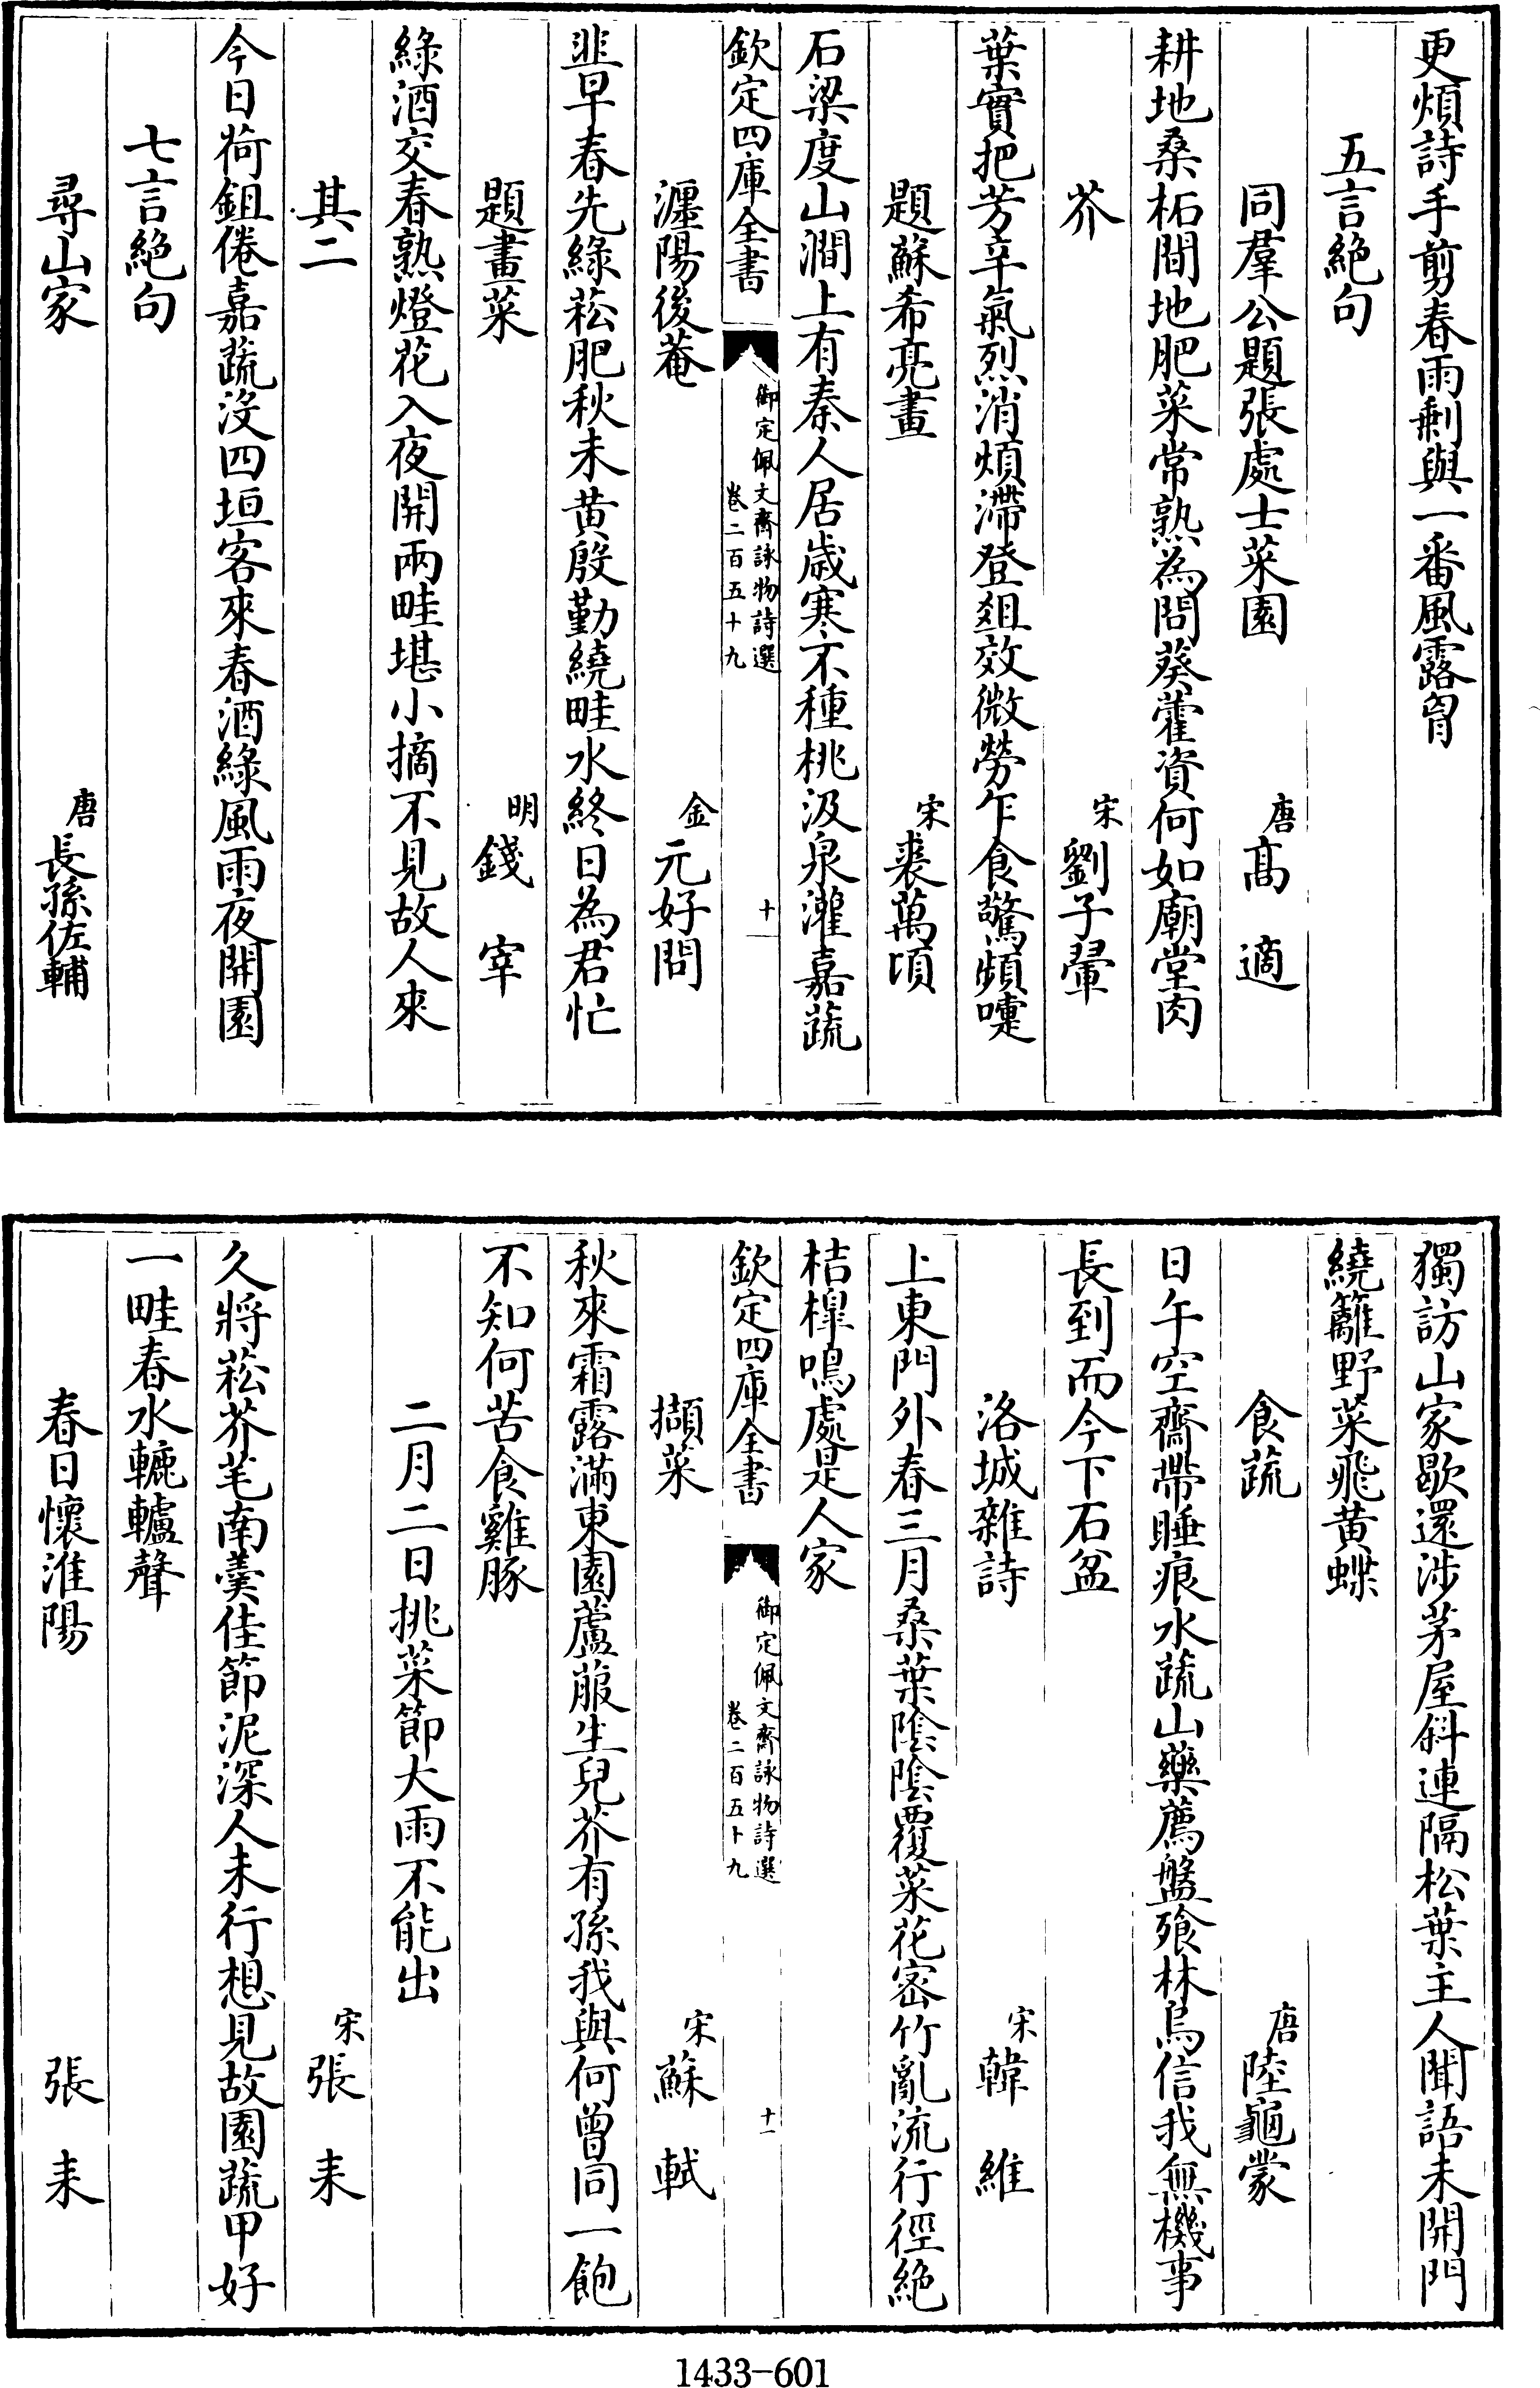 更煩詩手剪春雨剩與一番風露胷
五言絕句
同羣公題張處士菜園
唐
髙適
耕地桑柘間地肥菜常熟為問葵藿資何如廟堂肉
芥
宋
劉子翬
葉實把芳辛氣烈消煩滯登俎效微勞乍食驚頻嚏
題蘇希亮畫
宋
裘萬頃
石梁度山澗上有秦人居歲寒不種桃汲泉灌嘉蔬
欽定四庫全書
御定佩文齋詠物詩選
卷二百五十九
十
㶏陽後菴
金
元好問
韭早春先綠菘肥秋未黄殷勤繞畦水終日為君忙
題畫菜
明
錢宰
綠酒交春熟燈花入夜開兩畦堪小摘不見故人來
其二
今日荷鉏倦嘉蔬没四垣客來春酒綠風雨夜開園
七言絕句
尋山家
唐
長孫佐輔
獨訪山家歇還涉茅屋斜連隔松葉主人聞語未開門
繞籬野菜飛黄蝶
食蔬
唐
陸龜蒙
日午空齋帶睡痕水蔬山藥薦盤飱林烏信我無機事
長到而今下石盆
洛城雜詩
宋
韓維
上東門外春三月桑葉陰陰覆菜花密竹亂流行徑絶
桔槔鳴處是人家
欽定四庫全書
御定佩文齋詠物詩選
卷二百五十九
十一
擷菜
宋
蘇軾
秋來霜露滿東園蘆菔生兒芥有孫我與何曾同一飽
不知何苦食雞豚
二月二日挑菜節大雨不能出
宋
張耒
久將菘芥芼南羮佳節泥深人未行想見故園蔬甲好
一畦春水轆轤聲
春日懷淮陽
張耒
1433-601